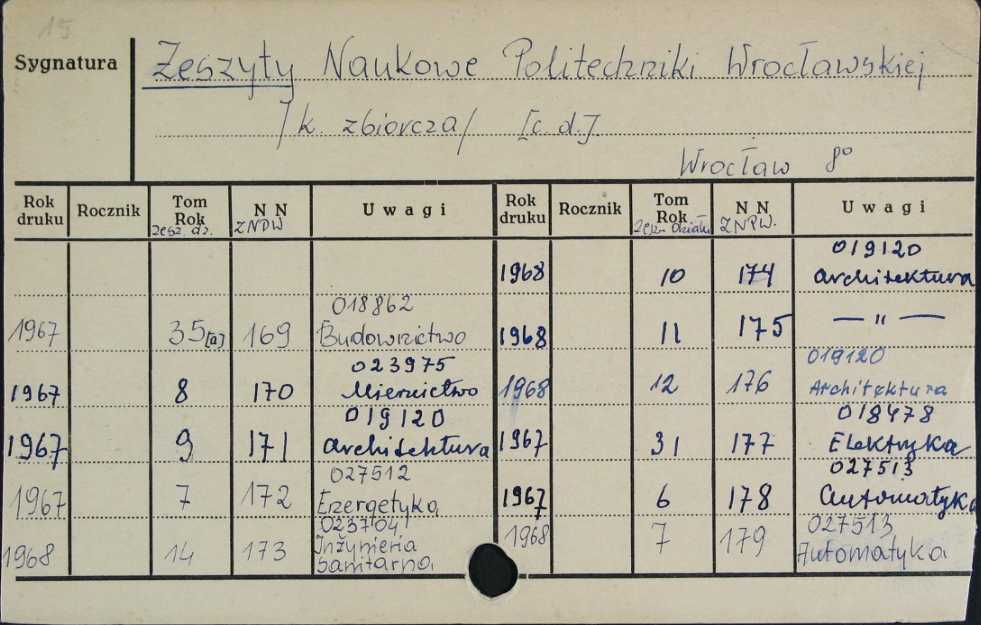 15
Sygnatura
Zeszyty Naukowe Politechniki Wrocławskiej
/k. zbiorcza/ [c.d.]
Wrocław 8°
Rok druku Rocznik Tom Rok zesz. dz. N N ZNPW Uwagi Rok druku Rocznik Tom Rok zesz. działu N N ZNPW. Uwagi
1968 10 174 019120 Architektura
1967 35[a] 169 018862 Budownictwo 1968 11 175 — " —
1967 8 170 023975 Miernictwo 1968 12 176 019120 Architektura
1967 9 171 019120 Architektura 1967 31 177 018478 Elektryka
1967 7 172 027512 Energetyka 1967 6 178 027513 Automatyka
1968 14 173 023704 Inżynieria sanitarna 1968 7 179 027513 Automatyka